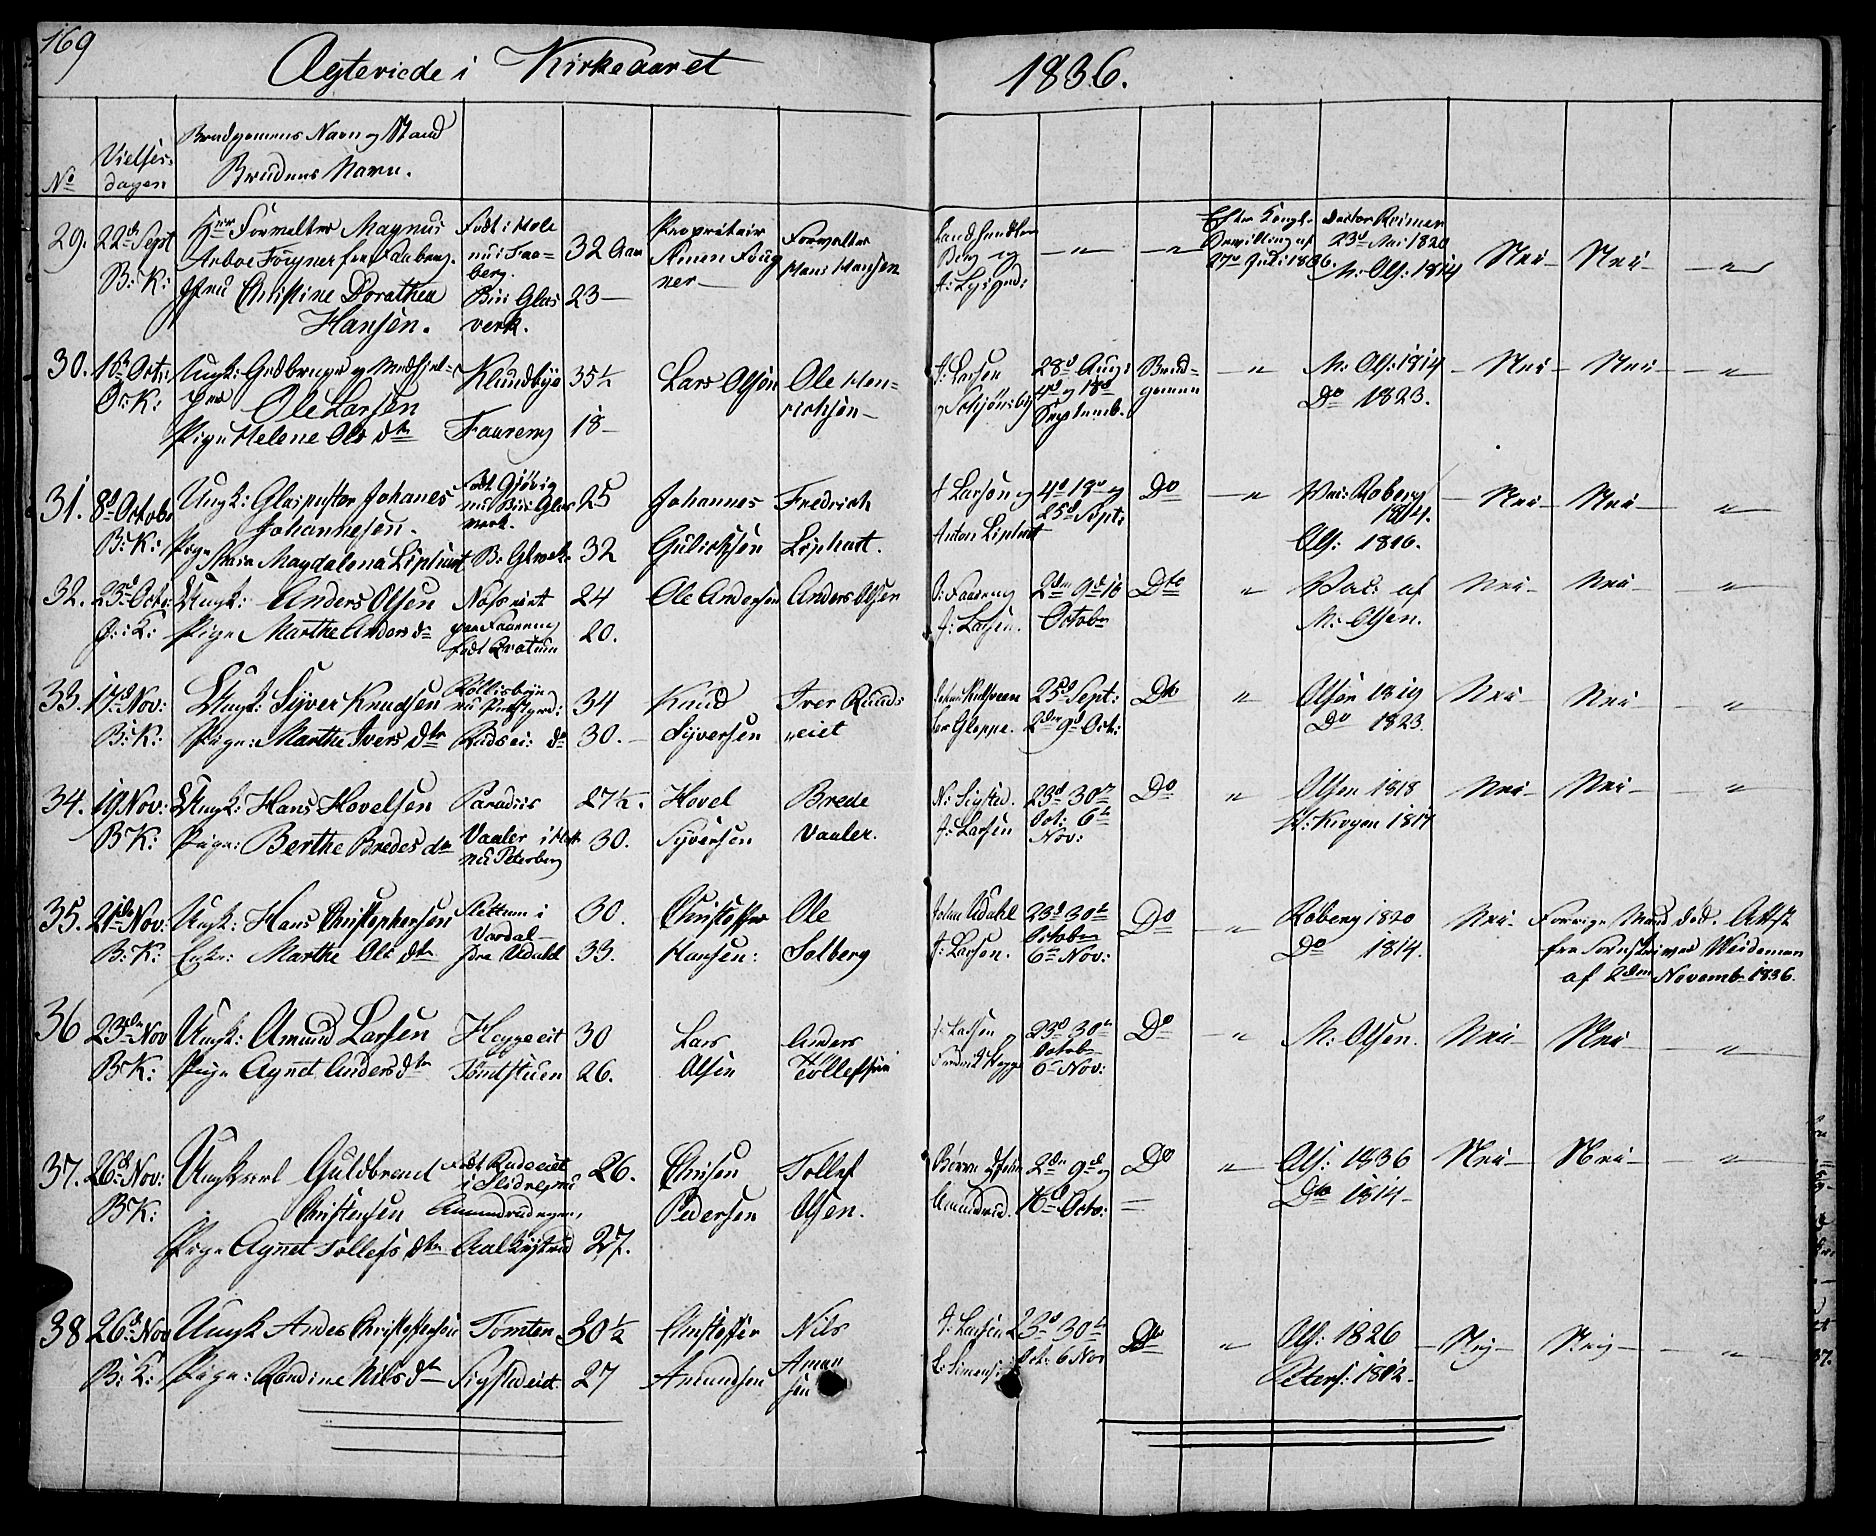 169
Ægteviede i Kirkeaaret 1836.
No
Vielses-
dagen
Brudgommens Navn og Stand
Brudens Navn.
29. 22de Sept
B: K:
Hrr Forvalter Magnus
Arboe Fougner fra Faaberg.
Jfru Christine Dorathea
Hansen.
Født i
nu i Faa-
berg.
Biri Glas
verk.
32 Aar
23 —
Proprietair
Amen Foug
ner —
Forvalter
Hans Hansen
Landhandler
— " — — " —
Efter Kongl.
Bevilling af
27de Juli 1836.
doctor Reimer
23de Mai 1820
M: Ols: 1814
Nei — Nei — — "
30. 1ste Oct:
B: K:
Ungk: Gaardbruger og Medhjel-
per Ole Larsen
Pige Helene Ols dtr
Klundbye
Faareng
35½
18 —
Lars Olsen
Ole Hen-
richsen —
J: Larsen
28de Aug:
4de og 18de
Septemb.
Brud-
gomen
— "
M: Ols: 1814
Do 1823.
— Nei — Nei — — "
31. 8de Octobr
B: K:
Ungk: Glaspuster Johanes
Johannesen.
Pige Maria Magdalena Liphart
Født Gjøvig
nu Biri Glas
verk.
B: Glverk.
25
32
Johannes
Gulichsen
Fredrich
Liphart.
J Larsen og
Anton Liphart
4de 18de og
25de Sept:
Do
— "
Roberg
1814.
Ols: 1816.
— Nei — Nei — "
32. 23de Octr:
B: K:
Ungk: Anders Olsen
Pige Marthe Anders dtr
født Bratuen
24
20.
Ole Andersen
Anders Olsen
O: Faareng
J: Larsen.
2den 9de 16
Octobr
Dto
"
Vac: af
M: Olsen.
Nei — Nei — "
33. 17de Nov:
B: K:
Ungk: Syver Knudsen
Pige: Marthe Ivers dtr
34
30. —
Knud
Syversen
Iver Ruuds
eiet
Gloppe.
25de Sept:
2den 9de Oct:
Dto
"
Olsen 1819
Do 1823.
Nei — Nei — "
34. 19 Nov:
B: K:
Ungk: Hans Hovelsen
Pige: Berthe Bredes dtr
Paradiis
Vaaler
nu Peterberg
27½.
30.
Hovel
Syversen
Brede
Vaaler.
N: Sigsted.
J: Larsen
23de 30te
Oct: 6te
Nov:
Do
"
Olsen 1818
1817
Nei — Nei — "
35. 21de Nov:
B: K:
Ungk: Hans Christophersen
Enke: Marthe Ols dtr
Slettum i
Vardal —
Udahl
30.
33.
Christoffer
Hansen:
Ole
Solberg
Johan Udahl
J: Larsen.
23de 30te
Octobr
6te Nov:
Do
— "
Roberg 1820
Do 1814.
Nei — Forrige Mand død. Attst
fra Sorenskriver Weideman
af 2den Novembr 1836.
36 23de Nov
B: K:
Ungk: Amund Larsen
Pige Agnet Anders dtr
Hageeit
Tundstuen
30
26.
Lars
Olsen
Anders
Tollefsen
J: Larsen og
23de 30te
Octobr
6te Nov:
Do
— "
M: Olsen.
Nei — Nei — "
37. 26de Nov:
B: K:
Ungkarl Guldbrand
Christensen
Pige Agnet Tollefs dtr
Født Rudeeiet
26.
27.
Christen
Pedersen
Tollef
Olsen.
2den 9de og
16de Octr:
Do
—
"
Ols: 1836
Do 1814 —
Nei — Nei — "
38 26de Nov
B: K:
Ungk Andes Christophersen
Pige: Randine Nils dtr
Tomten
Sigstadeiet
30½
27
Christoffer
Amundsen
Nils
Amun
sen
J: Larsen
L: Simensen
23de 30te
Oct: 6 Nov
Do
"
Ols: 1826
Peters: 1812 —
— Nej — Nej — — "